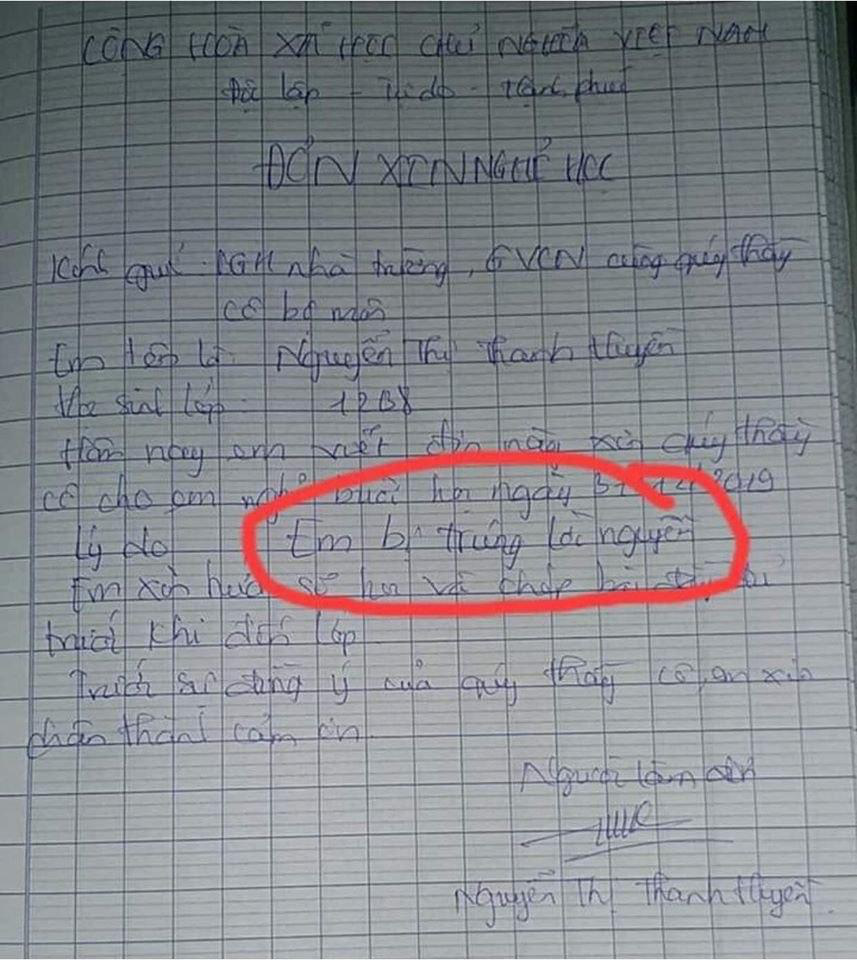 CỘNG HOÀ XÃ HỘC CHỦ NGHĨA VIỆT NAM
Độc lập - Tự do - Hạnh phúc
ĐƠN XIN NGHỈ HỌC
Kính quý BGH nhà trường, GVCN cùng quý thầy
cô bộ môn
Em tên là Nguyễn Thị Thanh Huyền
Học sinh lớp 12B8
Hôm nay em viết đơn này xin quý thầy
cô cho em nghỉ buổi học ngày 2019
Lý do Em bị trúng lời nguyền
Em xin hứa sẽ học và chép bài đầy đủ
trước khi đến lớp
Trước sự đồng ý của quý thầy cô, em xin
chân thành cảm ơn.
Người làm đơn
Nguyễn Thị Thanh Huyền